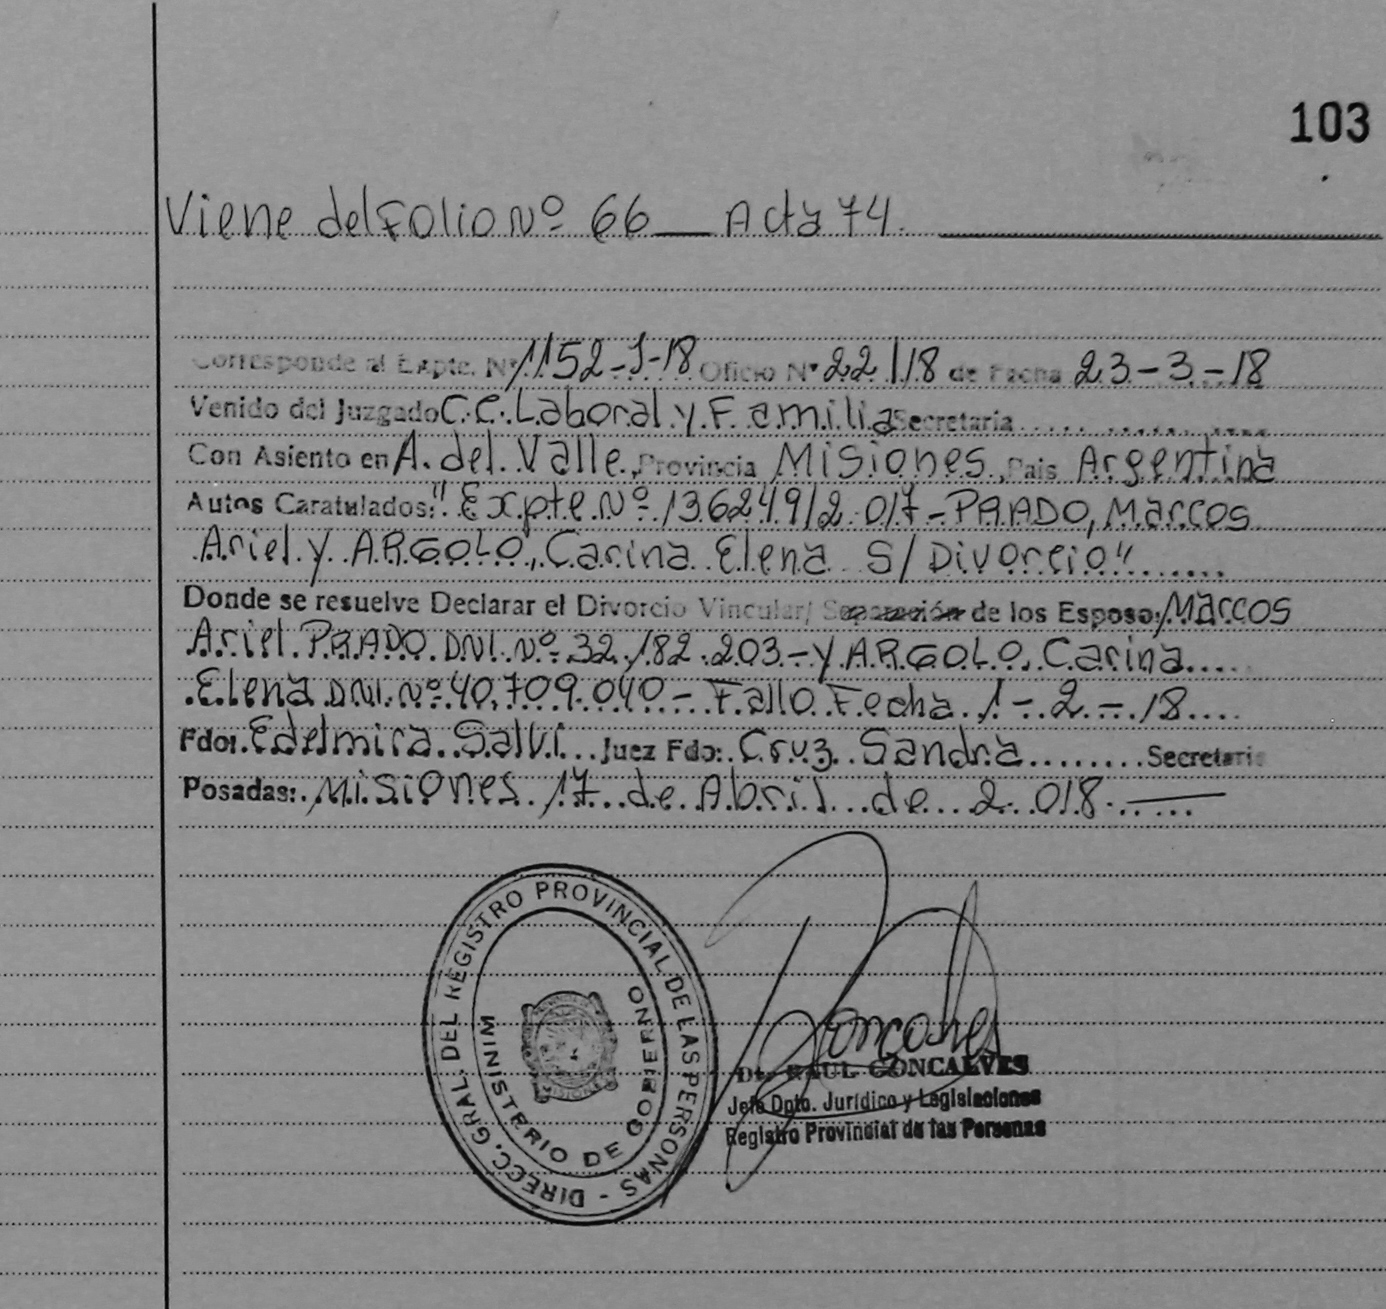 103
Viene del Folio Nº 66 — Acta 74.
Corresponde al Expte. Nº 1152-J-18 Oficio Nº 22/18 de Fecha 23-3-18
Venido del Juzgado C.C. Laboral y Familia Secretaria
Con Asiento en A. del Valle, Provincia Misiones, Pais Argentina
Autos Caratulados: "Expte Nº 136249/2.017 - PRADO, Marcos
Ariel y ARGOLO, Carina Elena S/ Divorcio"
Donde se resuelve Declarar el Divorcio Vincular/ Separación de los Esposo: Marcos
Ariel PRADO DNI. Nº 32.182.203 - y ARGOLO, Carina
Elena DNI. Nº 40.709.040 - Fallo Fecha 1 - 2 - 18
Fdo: Edelmira Salvi Juez Fdo: Cruz Sandra Secretaria
Posadas: Misiones 17 de Abril de 2.018
DIRECC. GRAL. DEL REGISTRO PROVINCIAL DE LAS PERSONAS -
MINISTERIO DE GOBIERNO
MISIONES
Goncalves
Dr. RAUL GONCALVES
Jefe Dpto. Jurídico y Legislaciones
Registro Provincial de las Personas